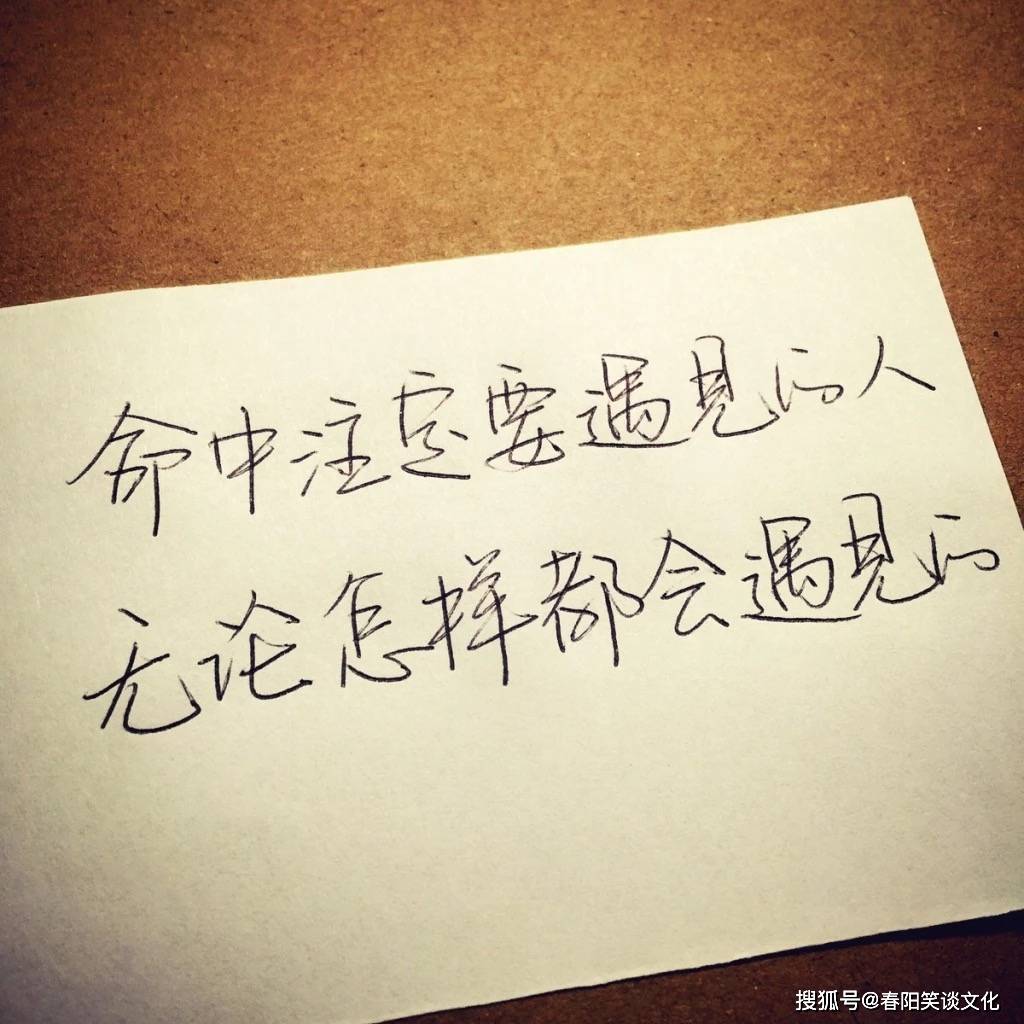 命中注定要遇见的人
无论怎样都会遇见的
搜狐号@春阳笑谈文化